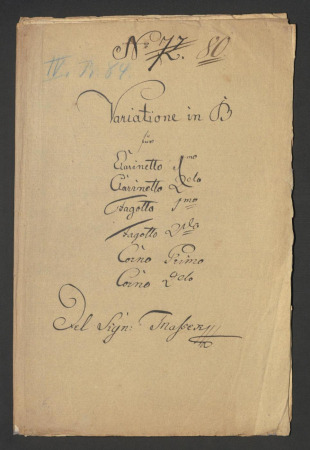 No 77. 80
IV. Nr 84.
Variatione in B
für
Clarinetto 1mo
Clarinetto 2do
Fagotto 1mo
Fagotto 2do
Corno Primo
Corno 2do
Del Sign: